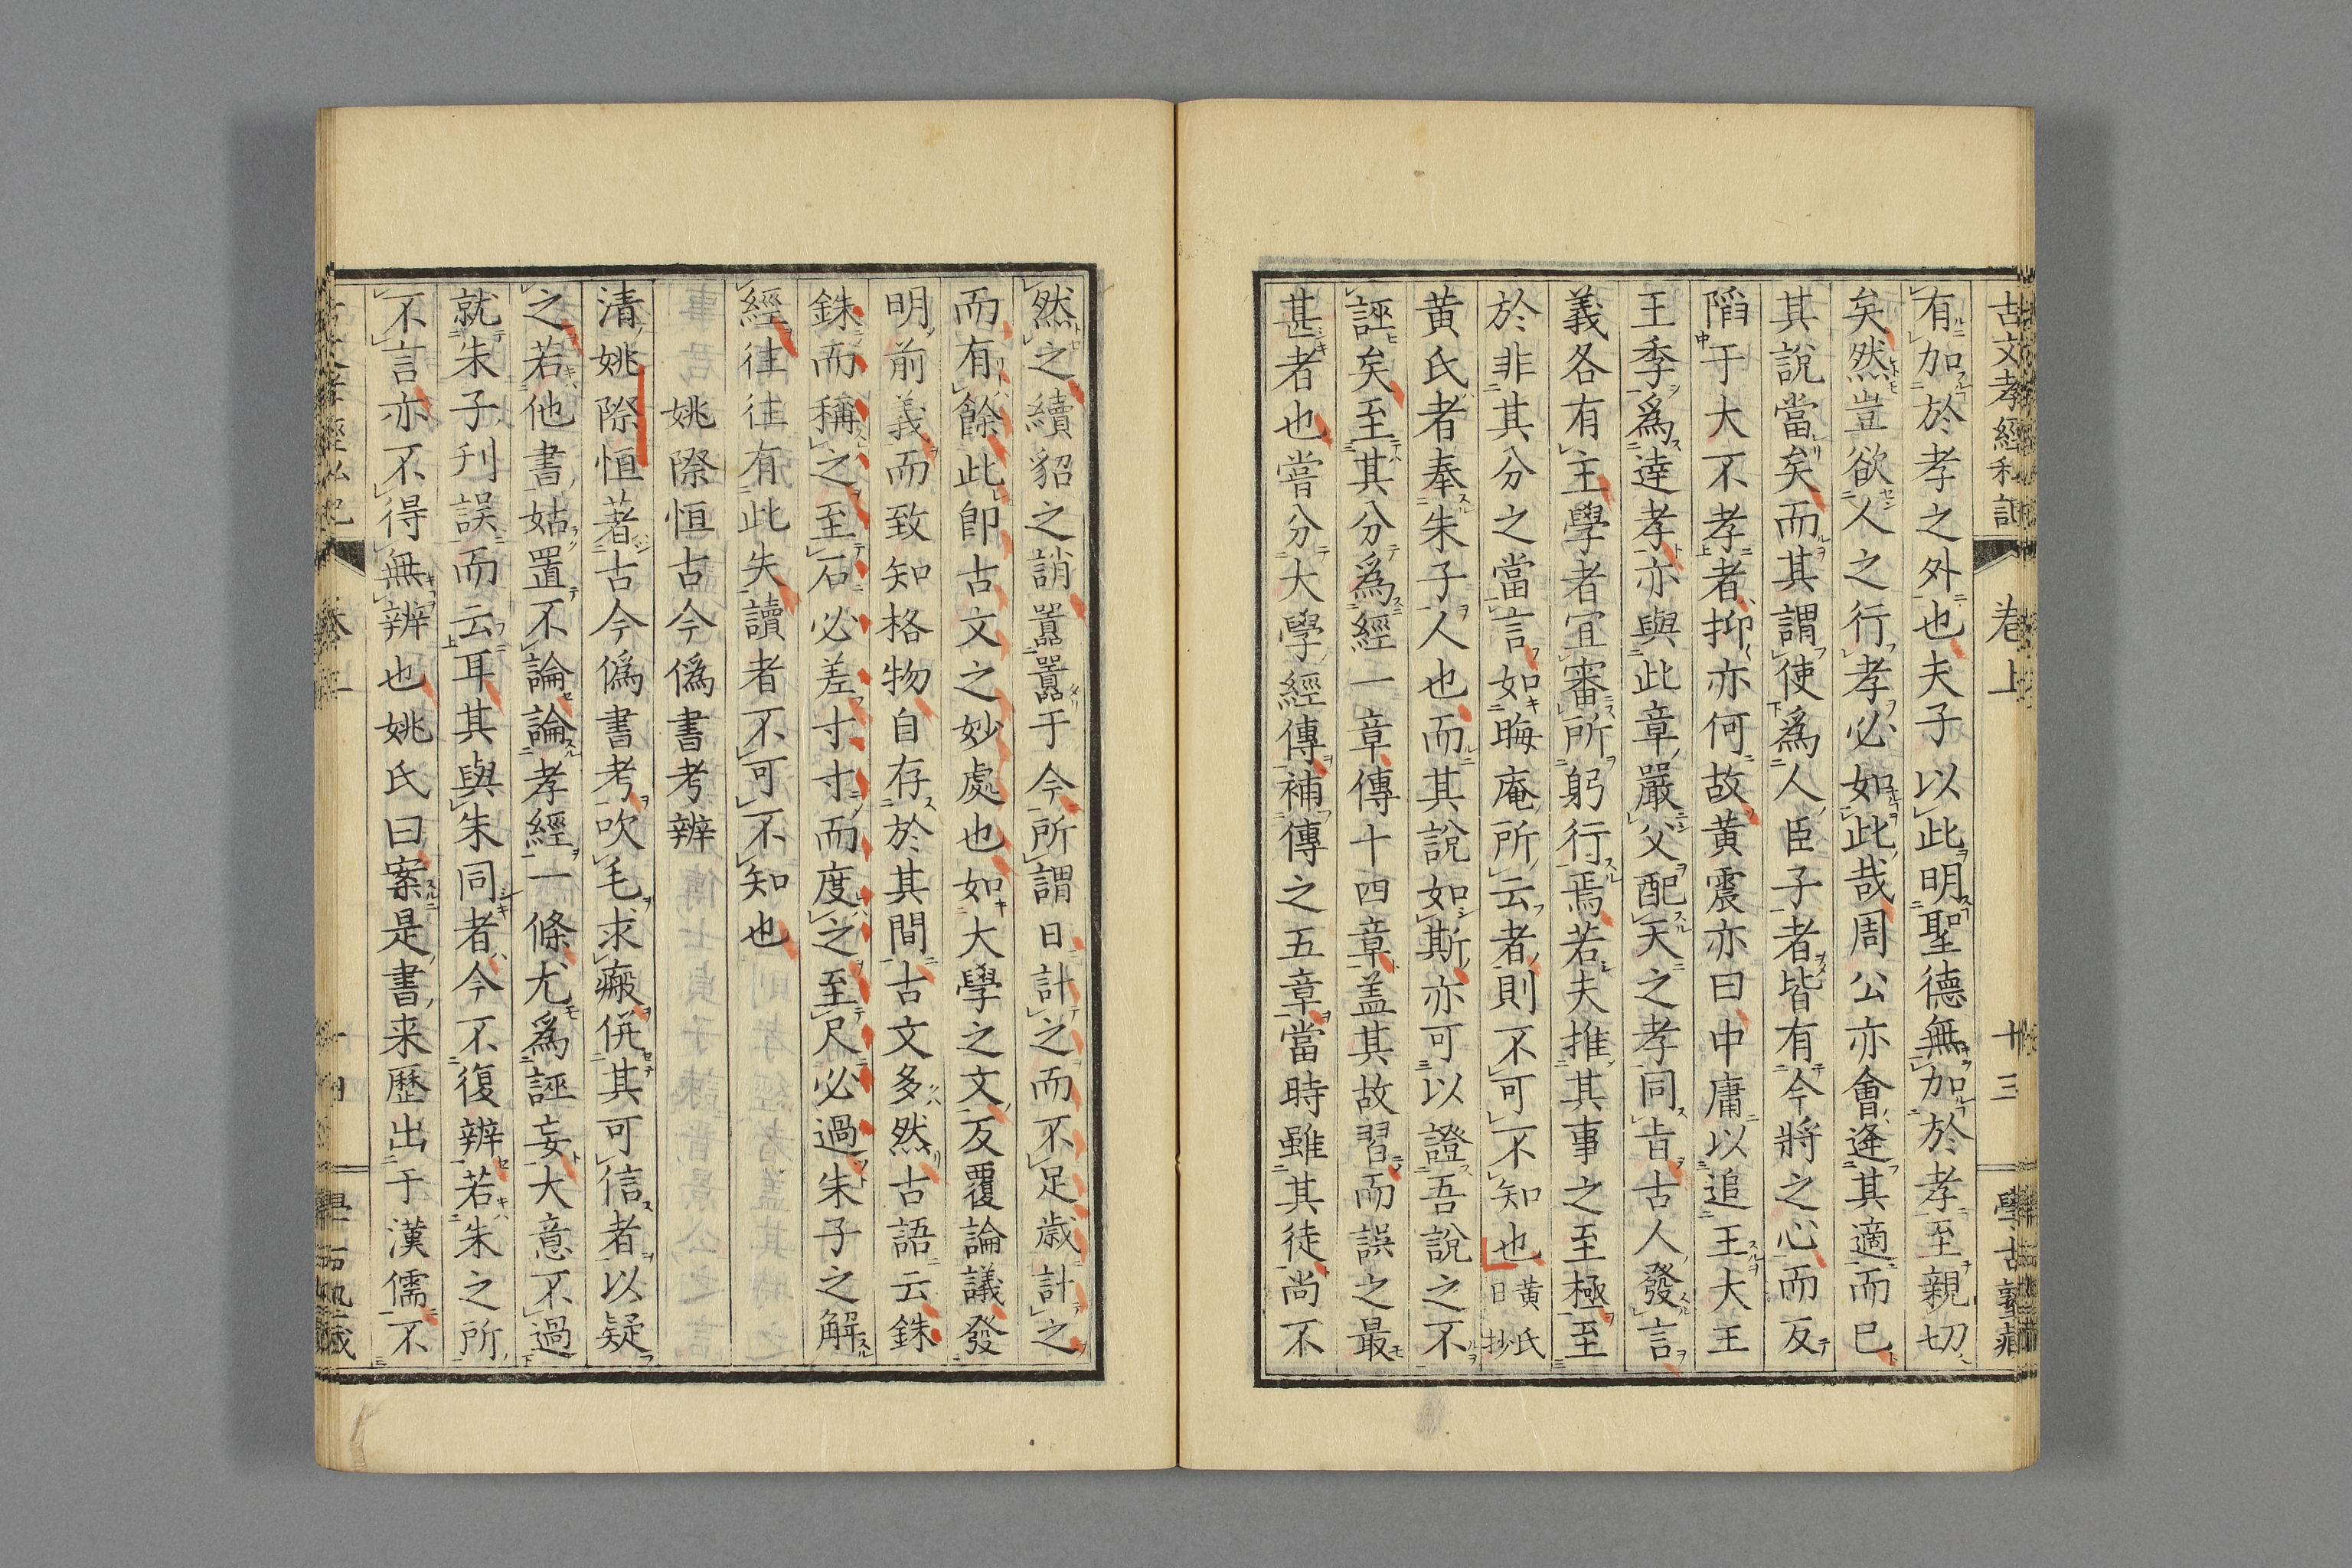 古文孝經私記 卷上 廿三 學古塾藏
有加於孝之外也夫子以此明聖德無加於孝至親切
矣然豈欲人之行孝必如此哉周公亦會逢其適而已
其說當矣而其謂使爲人臣子者皆有今將之心而反
陷于大不孝者抑亦何故黄震亦曰中庸以追王大王
王季爲達孝亦與此章嚴父配天之孝同旨古人發言
義各有主學者宜審所躬行焉若夫推其事之至極至
於非其分之當言如晦庵所云者則不可不知也黄氏日抄
黄氏者奉朱子人也而其說如斯亦可以證吾說之不
誣矣至其分爲經一章傳十四章盖其故習而誤之最
甚者也嘗分大學經傳補傳之五章當時雖其徒尚不
然之續貂之誚囂囂于今所謂日計之而不足歳計之
而有餘此卽古文之妙處也如大學之文反覆論議發
明前義而致知格物自存於其間古文多然古語云銖
銖而稱之至石必差寸寸而度之至尺必過朱子之解
經往往有此失讀者不可不知也
姚際恒古今僞書考辨
清姚際恒著古今僞書考吹毛求瘢併其可信者以疑
之若他書姑置不論論孝經一條尤爲誣妄大意不過
就朱子刋誤而云耳其與朱同者今不復辨若朱之所
不言亦不得無辨也姚氏曰案是書来歷出于漢儒不